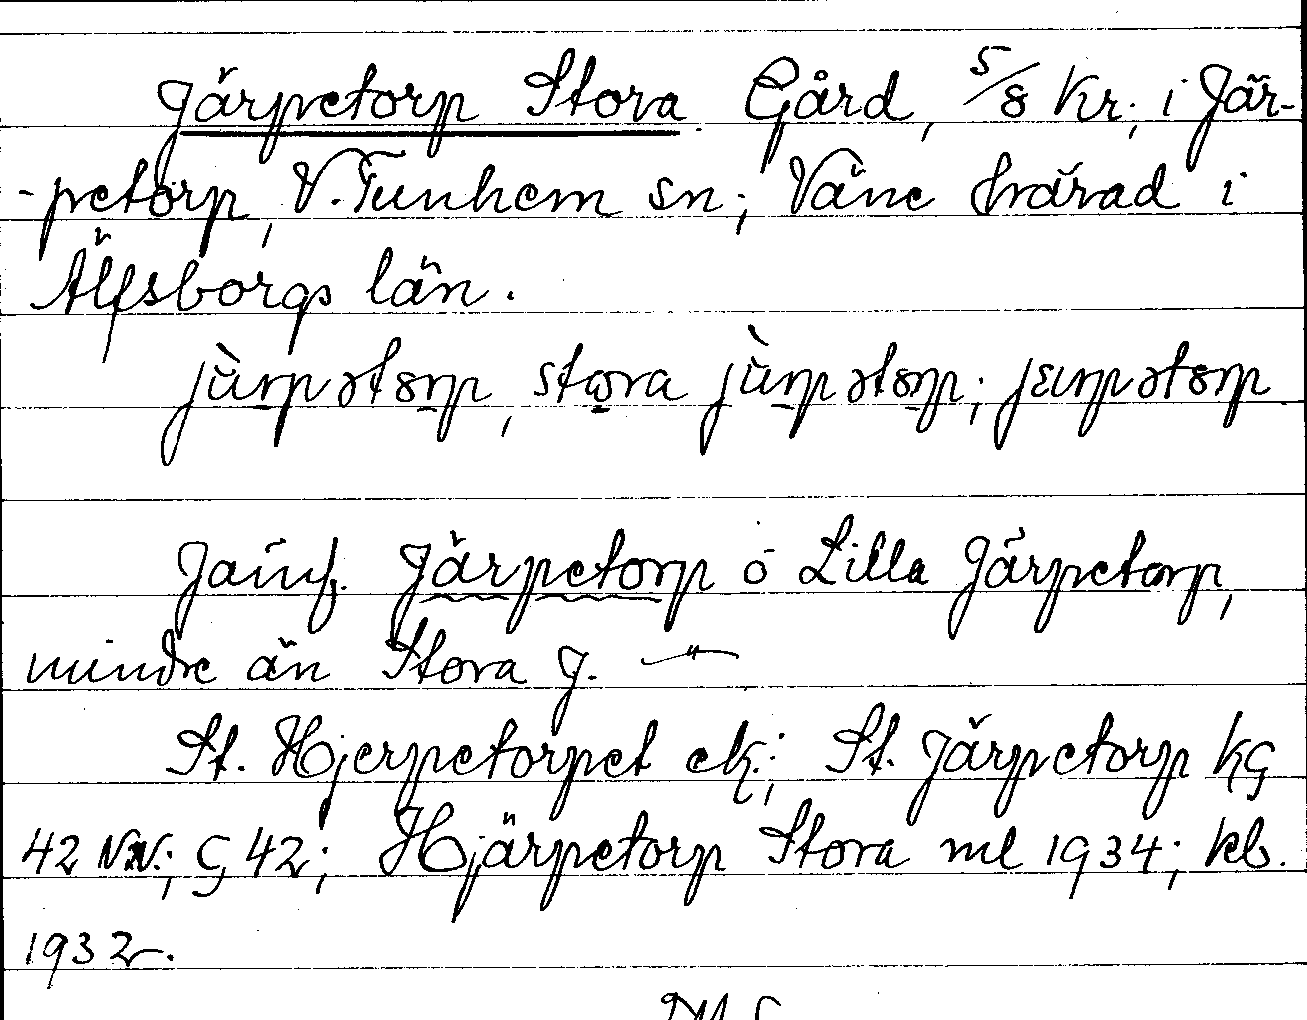 Järpetorp Stora. Gård, 5/8 Kr., i Jär-
-petorp, V. Tunhem sn; Väne härad i
Älfsborgs län.
stora
Jämf. Järpetorp o Lilla Järpetorp,
mindre än Stora J. —"—
St. Hjerpetorpet ek.; St. Järpetorp KG
42 NV.; G 42; Hjärpetorp Stora ml 1934; kb.
1932.